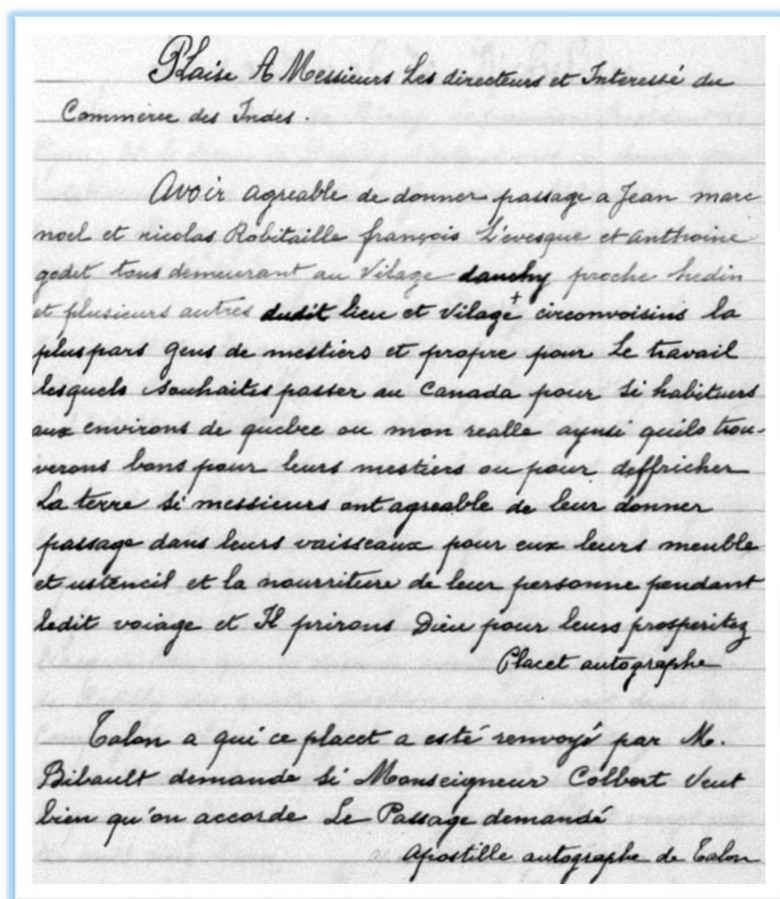 Plaise A Messieurs Les directeurs et Interessé du
Commerce des Indes.
Avoir agreable de donner passage a Jean marc
noel et nicolas Robitaille françois L'evesque et anthoine
godet tous demeurant au Vilage dauchy proche hedin
et plusieurs autres dudit lieu et vilage + circonvoisins la
pluspars gens de mestiers et propre pour Le travail
lesquels souhaites passer au Canada pour si habituers
aux environs de quebec ou mon realle aynsi quils trou-
verons bons pour leurs mestiers ou pour deffricher
La terre si messieurs ont agreable de leur donner
passage dans leurs vaisseaux pour eux leurs meuble
et ustencil et la nourriture de leur personne pendant
ledit voiage et Il prirons Dieu pour leurs prosperitez
Placet autographe
Talon a qui ce placet a esté renvoyé par M.
Bibault demande si Monseigneur Colbert Veut
bien qu'on accorde Le Passage demandé
apostille autographe de Talon